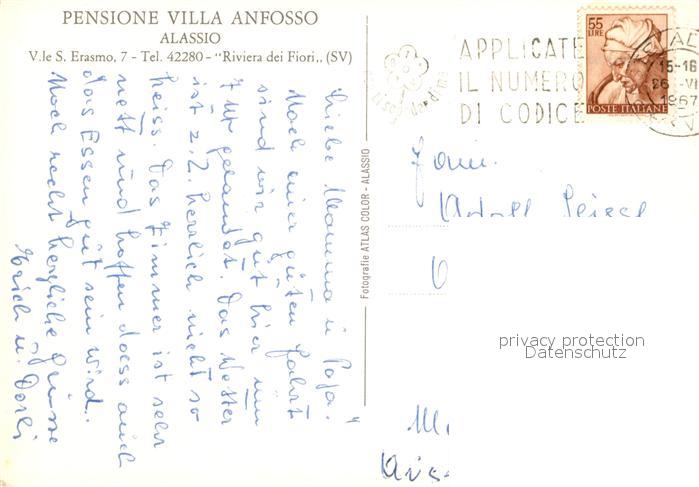 PENSIONE VILLA ANFOSSO
ALASSIO
V.le S. Erasmo, 7 - Tel. 42280 - "Riviera dei Fiori,, (SV)
Liebe Mamma u. Papa!
Nach einer guten Fahrt
sind wir gut hier um
7 Uhr gelandet. Das Wetter
ist z. Z. herrlich nicht so
heiss. Das Zimmer ist sehr
nett und hoffen dass auch
das Essen gut sein wird.
Noch recht herzliche Grüsse
Erich u. Dorli
Fotografie ATLAS COLOR - ALASSIO
APPLICATE
IL NUMERO
DI CODICE
55
LIRE
POSTE ITALIANE
15-16
26 VI
1967
Fam.
Adolf
privacy protection
Datenschutz